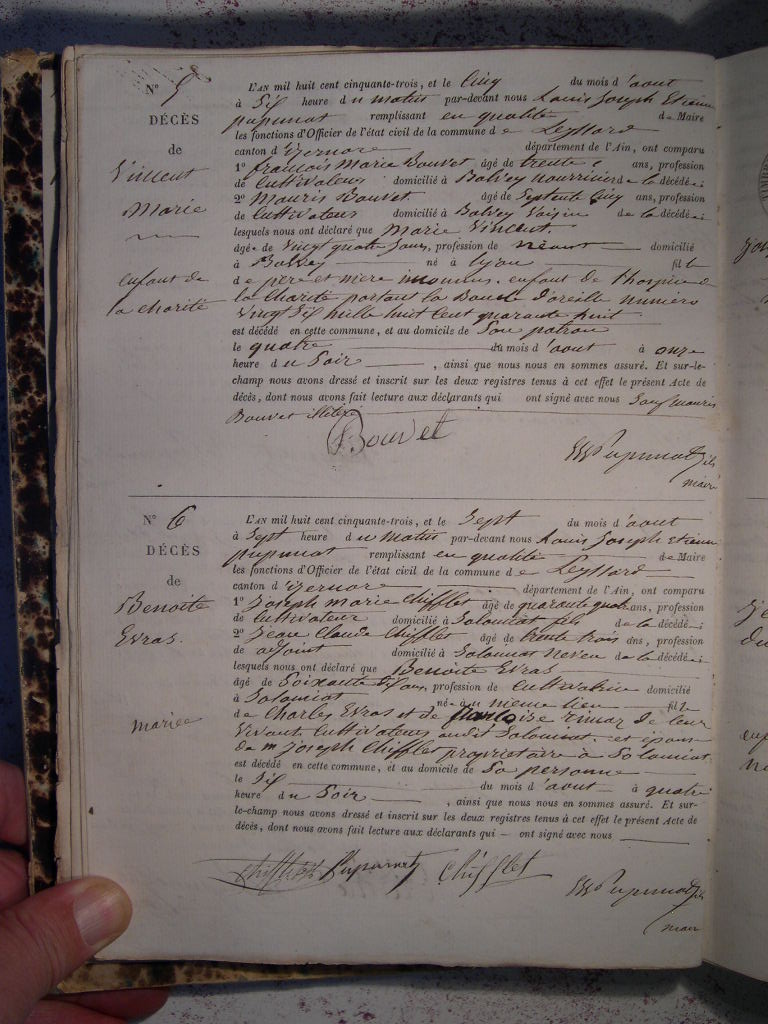 N° 5
DÉCÈS
de
Vincent
Marie
enfant de
la charité
L'AN mil huit cent cinquante-trois, et le Cinq du mois d'aout
à Six heure du matin par-devant nous Louis Joseph Etienne
pupunat remplissant en qualité de Maire
les fonctions d'Officier de l'état civil de la commune de Leyssard
canton d'izernore département de l'Ain, ont comparu
1° françois Marie Bouvet agé de trente ans, profession
de Cultivateur domicilié à Balvey nourricier de la décédée
2° Mauris Bouvet agé de Septente Cinq ans, profession
de Cultivateur domicilié à Balvey Voisin de la décédée
lesquels nous ont déclaré que Marie Vincent
agée de Vingt quatre Jours, profession de néant domicilié
à Balvey né à Lyon fille
de père et mère inconnus. enfant de l'hospice de
la Charité portant la Boucle d'oreille numéro
Vingt Six Mille huit Cent quarante huit
est décédé en cette commune, et au domicile de Son patron
le quatre du mois d'aout à onze
heure du Soir, ainsi que nous nous en sommes assuré. Et sur-le-
champ nous avons dressé et inscrit sur les deux registres tenus à cet effet le présent Acte de
décès, dont nous avons fait lecture aux déclarants qui ont signé avec nous Sauf Mauris
Bouvet illitéré
Bouvet
Pupunat fils
maire
N° 6
DÉCÈS
de
Benoite
Evras.
mariée
L'AN mil huit cent cinquante-trois, et le Sept du mois d'aout
à Sept heure du Matin par-devant nous Louis Joseph Etienne
pupunat remplissant en qualité de Maire
les fonctions d'Officier de l'état civil de la commune de Leyssard
canton d'izernore département de l'Ain, ont comparu
1° Joseph marie Chifflet agé de quarante quatre ans, profession
de Cultivateur domicilié à Solomiat fils de la décédée
2° Jean Claude Chifflet agé de trente trois ans, profession
de adjoint domicilié à Solomiat Neveu de la décédée
lesquels nous ont déclaré que Benoite Evras
agé de Soixante Six ans, profession de Cultivatrice domicilié
à Solomiat née au même lieu fille
de Charles Evras et de françoise de leur
Vivant Cultivateurs audit Solomiat. et épouse
de m Joseph Chifflet propriétaire à Solomiat
est décédé en cette commune, et au domicile de Sa personne
le Six du mois d'aout à quatre
heure du Soir, ainsi que nous nous en sommes assuré. Et sur-
le-champ nous avons dressé et inscrit sur les deux registres tenus à cet effet le présent Acte de
décès, dont nous avons fait lecture aux déclarants qui — ont signé avec nous
Chifflet Chifflet
Pupunat fils
maire